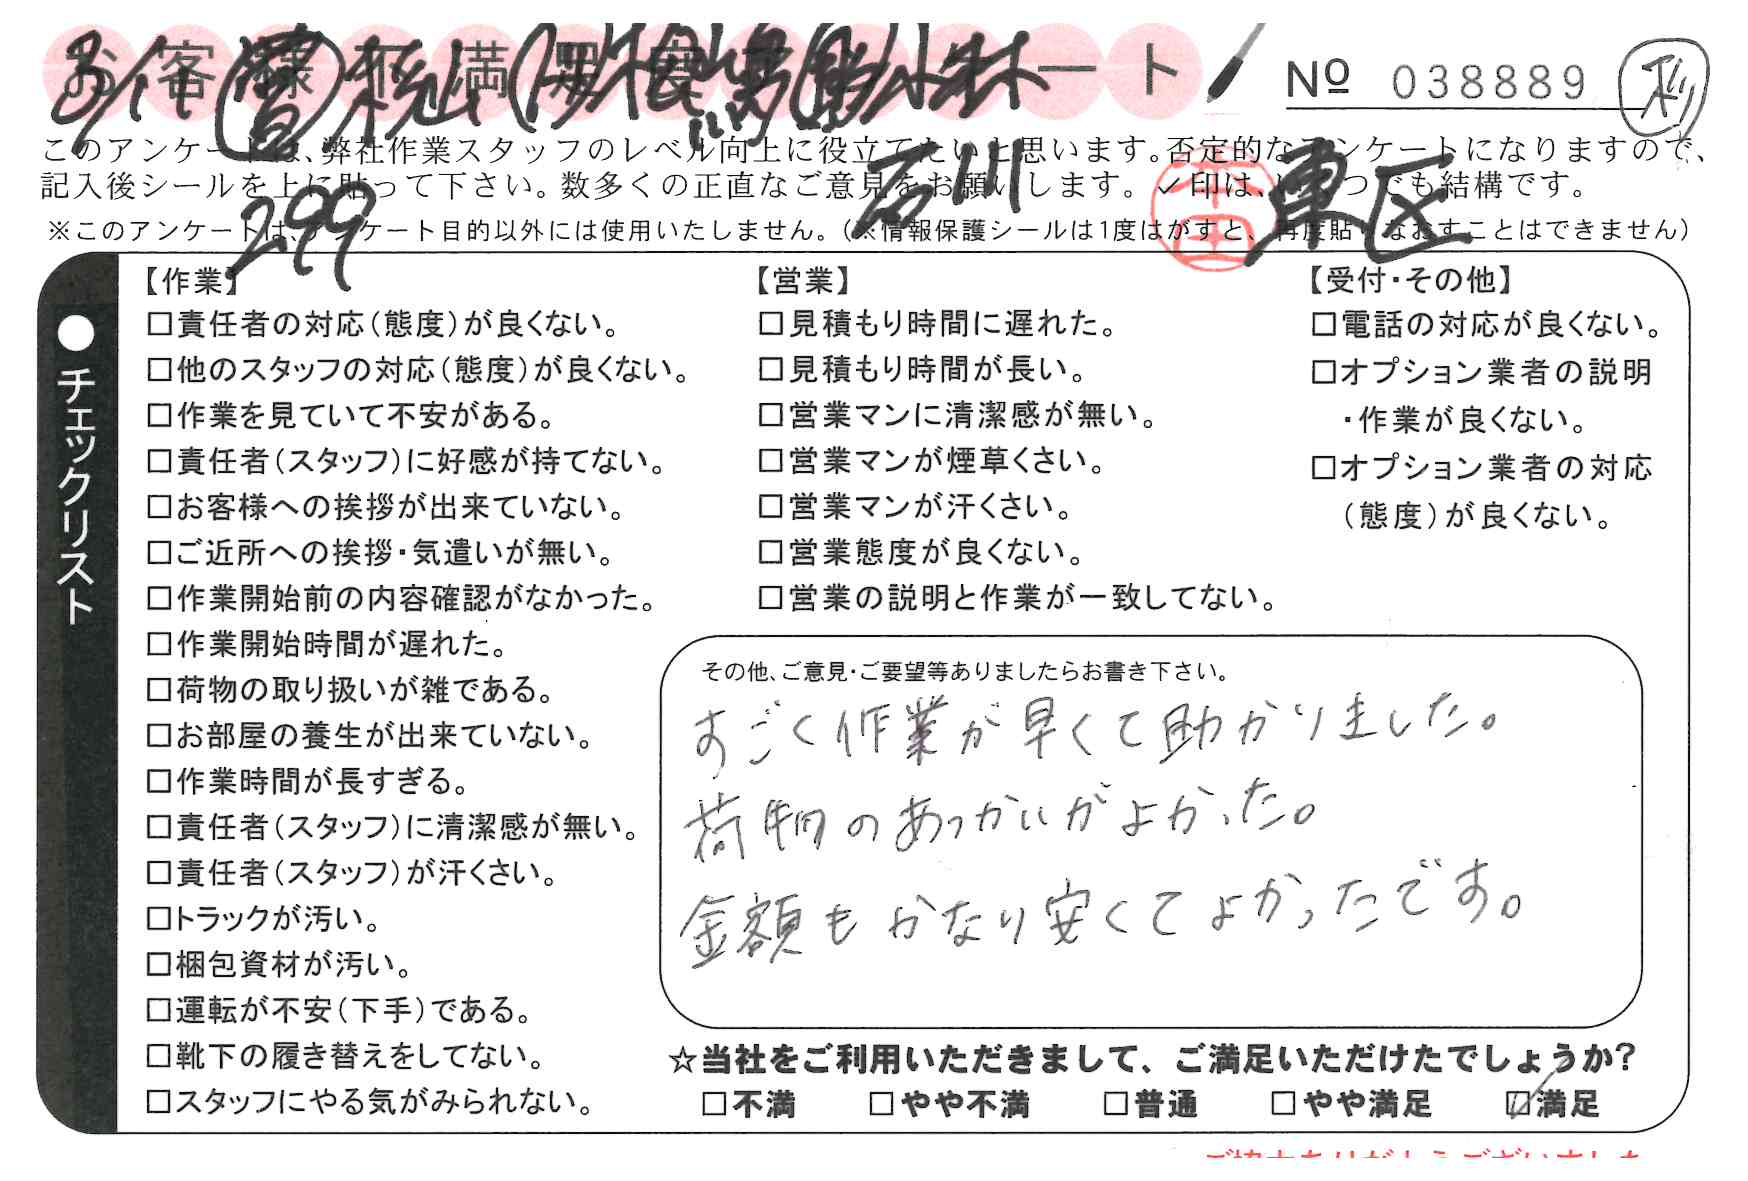 お客様不満足度アンケート
No 038889
このアンケートは、弊社作業スタッフのレベル向上に役立てたいと思います。否定的なアンケートになりますので、
記入後シールを上に貼って下さい。数多くの正直なご意見をお願いします。✓印は、いくつでも結構です。
299 石川 東区
※このアンケートは、アンケート目的以外には使用いたしません。(※情報保護シールは1度はがすと、再度貼りなおすことはできません)
●チェックリスト
【作業】
□責任者の対応(態度)が良くない。
□他のスタッフの対応(態度)が良くない。
□作業を見ていて不安がある。
□責任者(スタッフ)に好感が持てない。
□お客様への挨拶が出来ていない。
□ご近所への挨拶・気遣いが無い。
□作業開始前の内容確認がなかった。
□作業開始時間が遅れた。
□荷物の取り扱いが雑である。
□お部屋の養生が出来ていない。
□作業時間が長すぎる。
□責任者(スタッフ)に清潔感が無い。
□責任者(スタッフ)が汗くさい。
□トラックが汚い。
□梱包資材が汚い。
□運転が不安(下手)である。
□靴下の履き替えをしてない。
□スタッフにやる気がみられない。
【営業】
□見積もり時間に遅れた。
□見積もり時間が長い。
□営業マンに清潔感が無い。
□営業マンが煙草くさい。
□営業マンが汗くさい。
□営業態度が良くない。
□営業の説明と作業が一致してない。
【受付・その他】
□電話の対応が良くない。
□オプション業者の説明
・作業が良くない。
□オプション業者の対応
(態度)が良くない。
その他、ご意見・ご要望等ありましたらお書き下さい。
すごく作業が早くて助かりました。
荷物のあつかいがよかった。
金額もかなり安くてよかったです。
☆当社をご利用いただきまして、ご満足いただけたでしょうか?
□不満 □やや不満 □普通 □やや満足 ☑満足
ご協力ありがとうございました